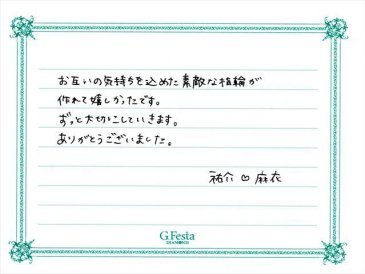 お互いの気持ちを込めた素敵な指輪が
作れて嬉しかったです。
ずっと大切にしていきます。
ありがとうございました。
祐介 ♡ 麻衣
G.Festa
DIAMOND